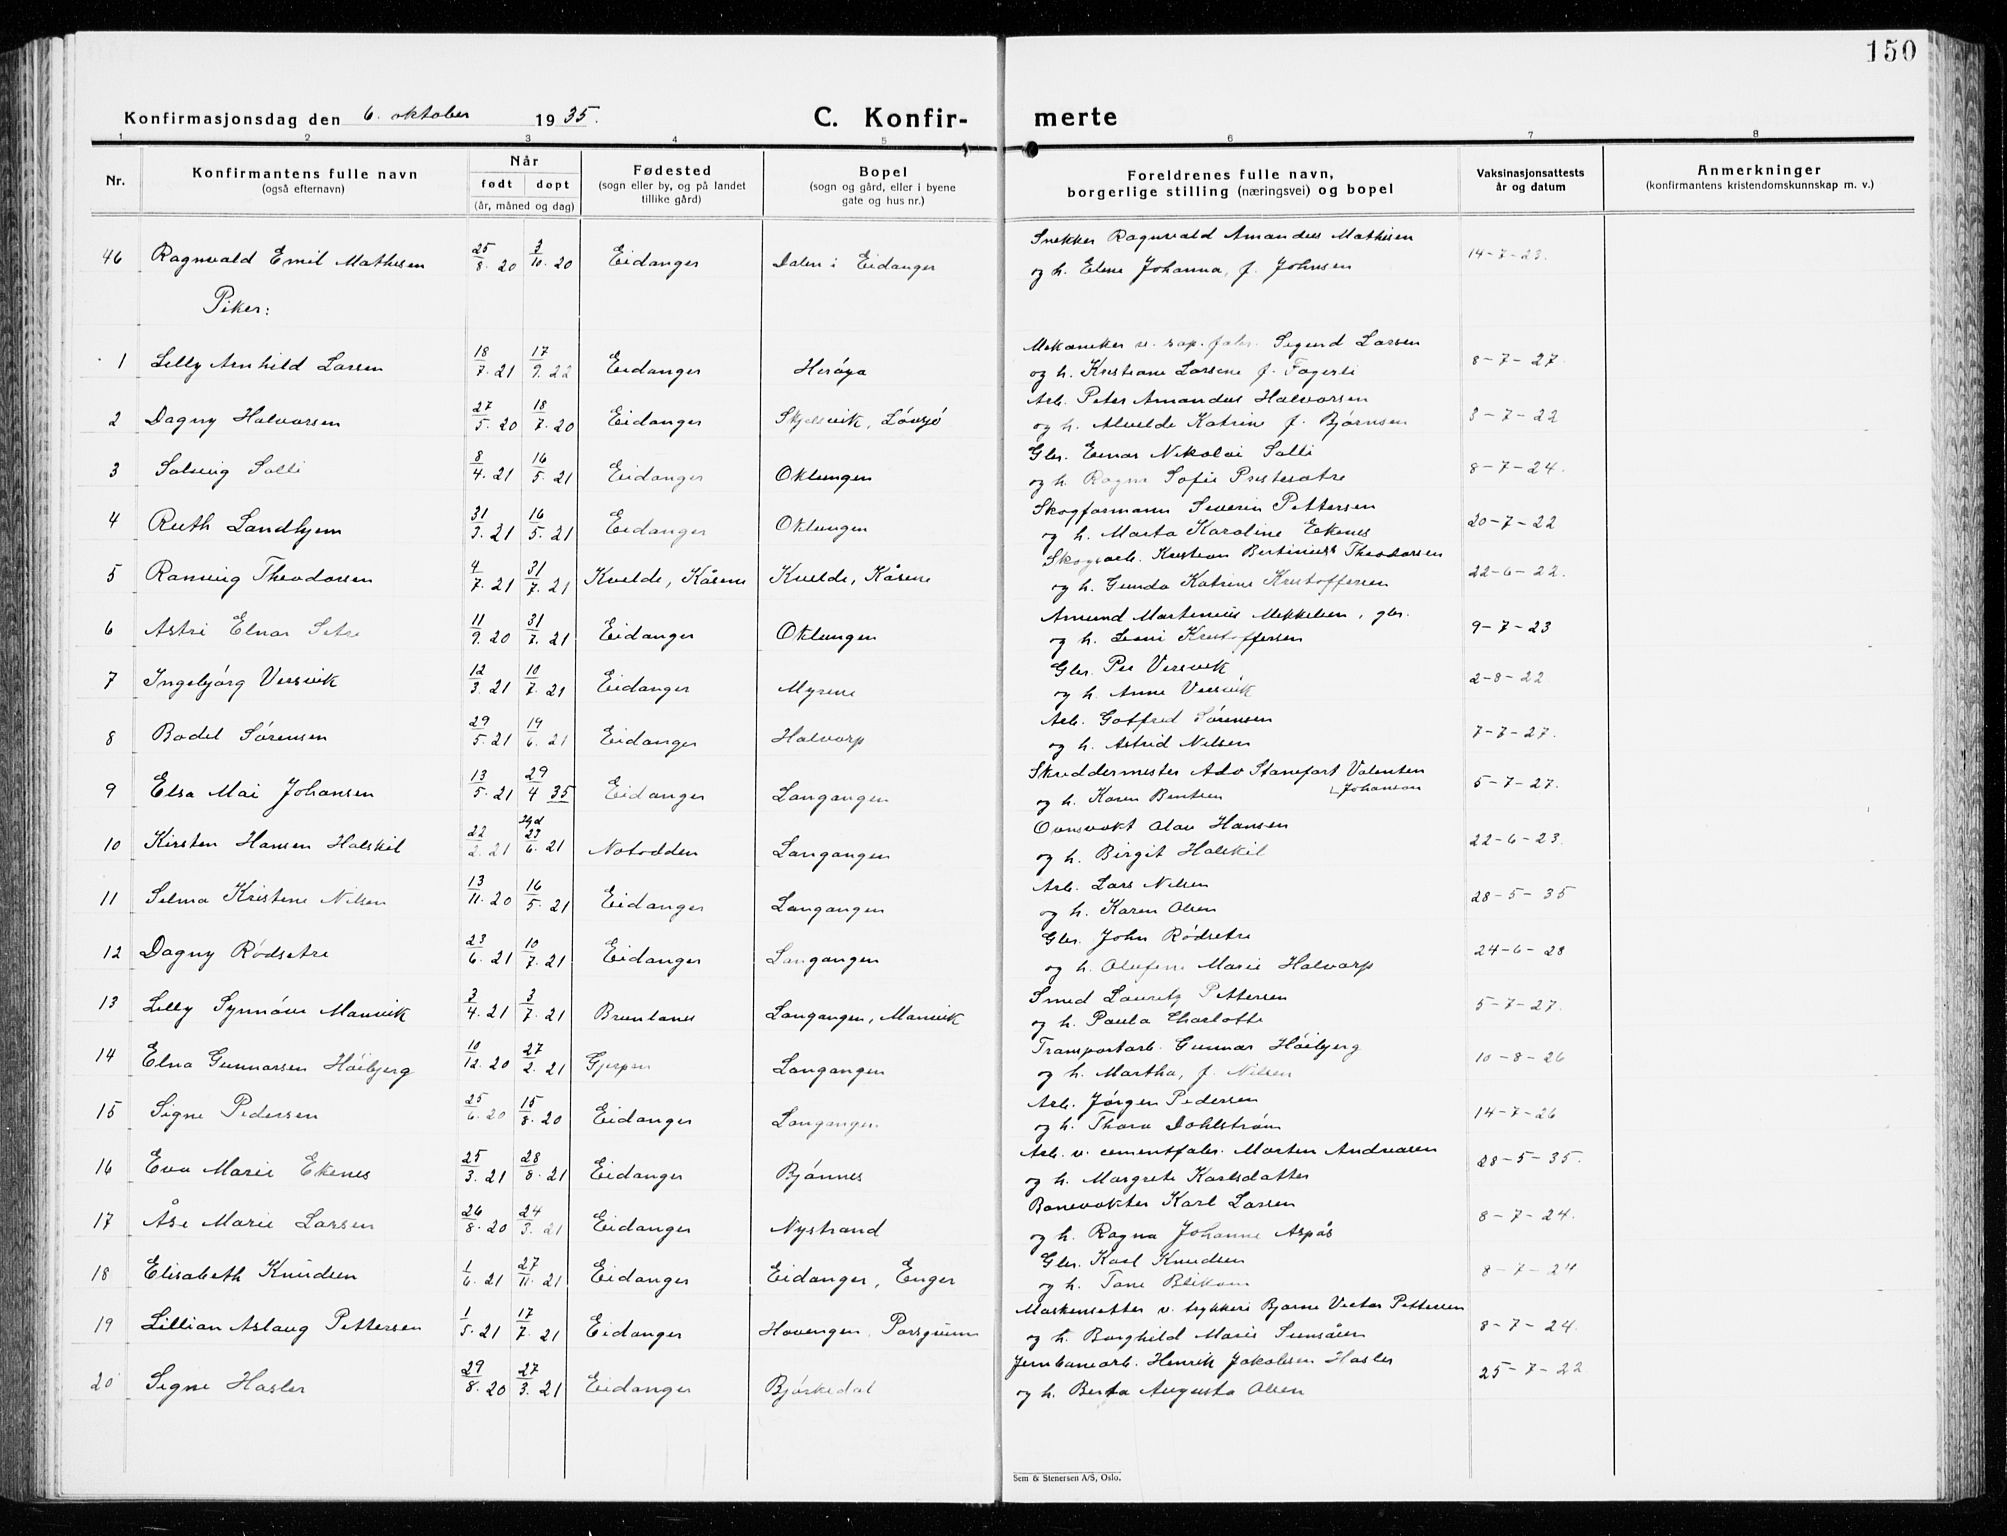 150
Konfirmasjonsdag den 6. oktober 1935.
C. Konfir-
merte
1 2 3 4 5 6 7 8
Nr.
Konfirmantens fulle navn
(også efternavn)
Når
født døpt
(år, måned og dag)
Fødested
(sogn eller by, og på landet
tillike gård)
Bopel
(sogn og gård, eller i byene
gate og hus nr.)
Foreldrenes fulle navn,
borgerlige stilling (næringsvei) og bopel
Vaksinasjonsattests
år og datum
Anmerkninger
(konfirmantens kristendomskunnskap m. v.)
46 Ragnvald Emil Mathisen 25/8. 20 3/10. 20 Eidanger Dalen i Eidanger Snekker Ragnvald Amandus Mathisen 14-7-23.
og h. Elene Johanna, f. Johnsen
Piker:
1 Lilly Arnhild Larsen 18/7. 21 17/9. 22 Eidanger Herøya Mekaniker v. sap. fabr. Sigurd Larsen 8-7-27.
og h. Kristiane Larsene f. Fagerli
2 Dagny Halvorsen 27/5. 20 18/7. 20 Eidanger Skjelsvik, Løvsjø Arb. Peter Amandus Halvorsen 3-7-22
og h. Alvilde Katrine f. Bjørnsen
3 Solveig Solli 8/4. 21 16/5. 21 Eidanger Oklungen Gbr. Einar Nikolai Solli 8-7-24.
og h. Ragna Sofie Prestesætre
4 Ruth Landhjem 31/3. 21 16/5. 21 Eidanger Oklungen Skogformann Severin Pettersen 20-7-22
og h. Marta Karoline Ekenes
5 Ranveig Theodorsen 4/7. 21 31/7. 21 Kvelde, Kåsene Kvelde, Kåsene Skogsarb. Kristian Bertinius Theodorsen 22-6-22.
og h. Gunda Katrine Kristoffersen
6 Astri Elnar Setre 11/9. 20 31/7. 21 Eidanger Oklungen Amund Martinius Mikkelsen, gbr. 9-7-23
og h. Kristoffersen
7 Ingebjørg Versvik 12/3. 21 10/7. 21 Eidanger Myrene Gbr. Per Versvik 2-8-22
og h. Anne Versvik
8 Bodil Sørensen 29/5. 21 19/6. 21 Eidanger Halvarp Arb. Gotfred Sørensen 7-7-27.
og h. Astrid Nilsen
9 Elsa Mai Johansen 13/5. 21 29/4 35 Eidanger Langangen Skreddermester Adv Stanefart Valentin 5-7-27.
og h. Karen Bentsen Johanson
10 Kirsten Hansen Halskil 22/2. 21 Hjd 23/6. 21 Notodden Langangen Ovnsvakt Olav Hansen 22-6-23.
og h. Birgit Halskil
11 Selma Kristine Nilsen 13/11. 20 16/5. 21 Eidanger Langangen Arb. Lars Nilsen 28-5-35
og h. Karen Olsen
12 Dagny Rødsetre 23/6. 21 10/7. 21 Eidanger Langangen Gbr. John Rødsetre 24-6-28
og h. Olufine Marie Halvarp
13 Lilly Synnøve Manvik 3/4. 21 3/7. 21 Brunlanes Langangen, Manvik Smed Lauritz Pettersen 5-7-27.
og h. Paula Charlotte
14 Elna Gunnarsen Høibjerg 10/12. 20 27/2. 21 Gjerpen Langangen Transportarb. Gunnar Høibjerg 10-8-26
og h. Martha, f. Nilsen
15 Signe Pedersen 25/6. 20 15/8. 20 Eidanger Langangen Arb. Jørgen Pedersen 14-7-26
og h. Thora Dahlstrøm
16 Eva Marie Ekenes 25/3. 21 28/8. 21 Eidanger Bjønnes Arb. v. cementfabr. Morten Andreasen 28-5-35.
og h. Margrete Karlsdatter
17 Åse Marie Larsen 26/8. 20 24/3. 21 Eidanger Nystrand Banevokter Karl Larsen 8-7-24.
og h. Ragna Johanne Aspås
18 Elisabeth Knudsen 1/6. 21 27/11. 21 Eidanger Eidanger, Enger Gbr. Karl Knudsen 8-7-24
og h. Tone Blikom
19 Lillian Aslaug Pettersen 1/5. 21 17/7. 21 Eidanger Hovengen, Porsgrunn Maskinsetter v. trykkeri Bjarne Victor Pettersen 8-7-24.
og h. Borghild Marie
20 Signe Hasler 29/8. 20 27/3. 21 Eidanger Bjørkedal Jernbanearb. Henrik Jakobsen Hasler 25-7-22
og h. Berta Augusta Olsen
Sem & Stenersen A/S, Oslo.